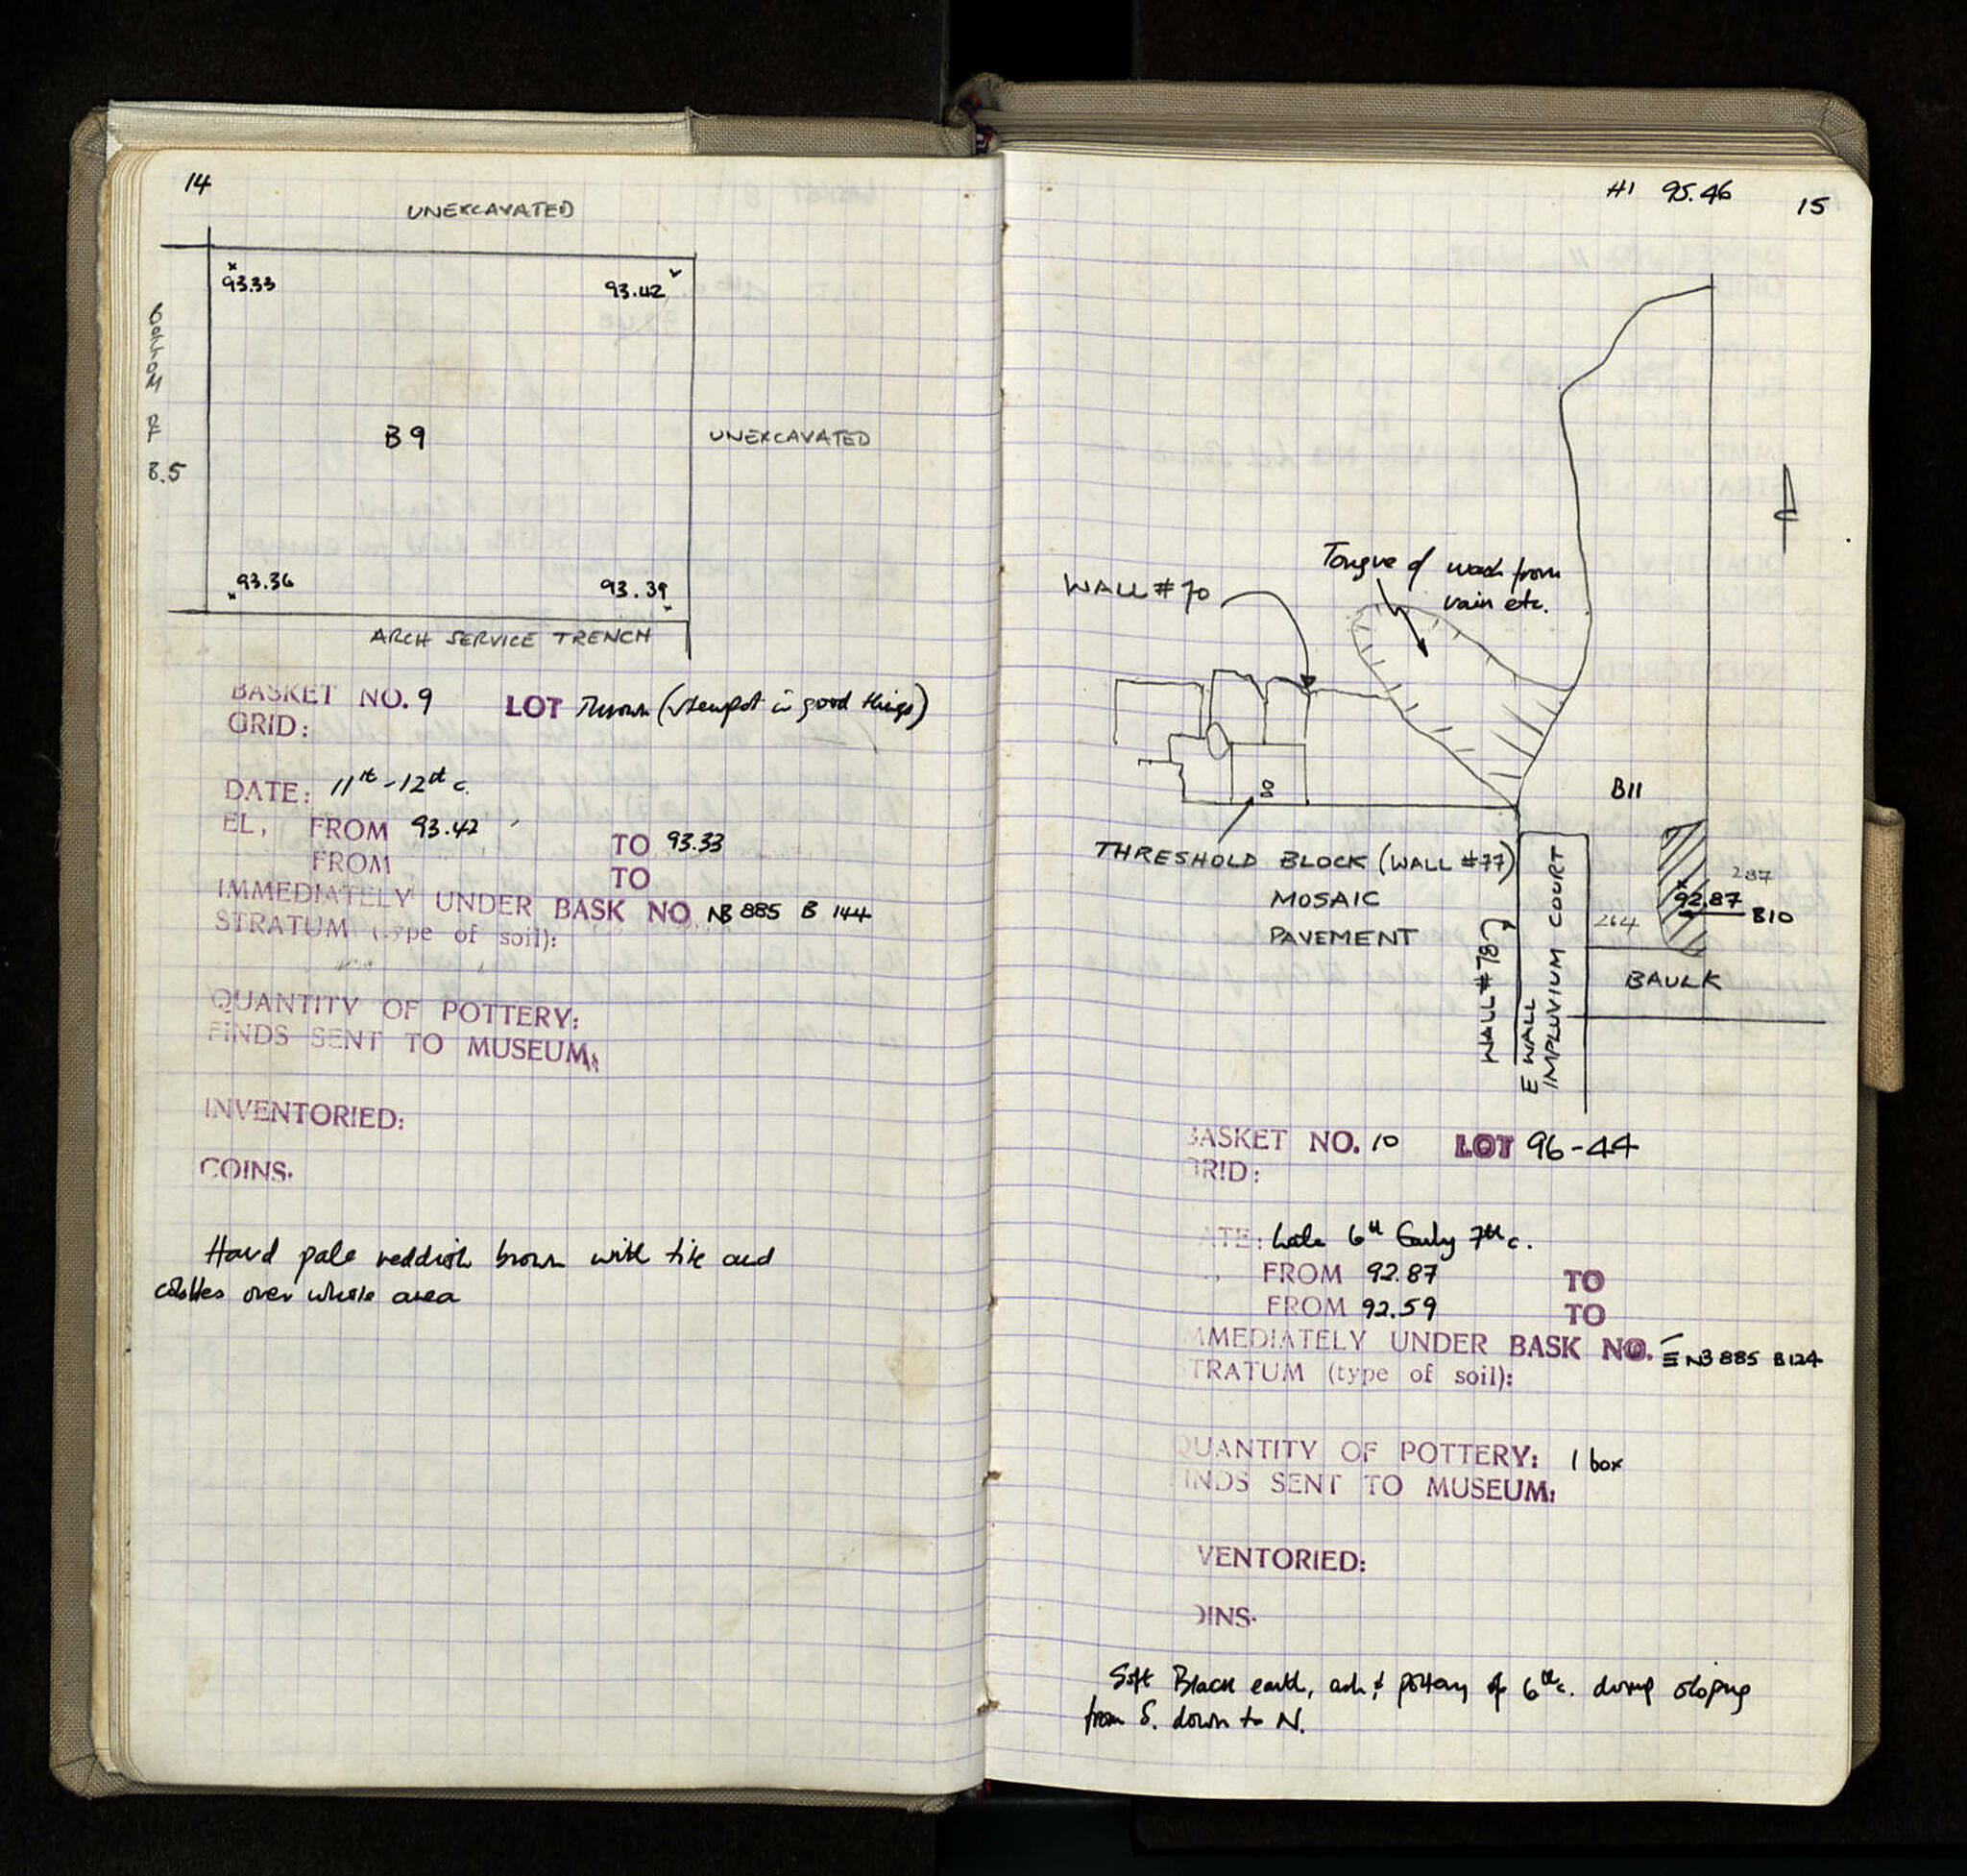 14
UNEXCAVATED
93.33
93.42
BOTTOM
B9
UNEXCAVATED
8.5
93.36
93.39
ARCH SERVICE TRENCH
BASKET NO. 9 LOT Thrown ( in good things)
GRID:
DATE: 11th-12th c.
EL, FROM 93.42 TO 93.33
FROM TO
IMMEDIATELY UNDER BASK NO NB 885 B 144
STRATUM (type of soil):
QUANTITY OF POTTERY:
FINDS SENT TO MUSEUM:
INVENTORIED:
COINS.
Hard pale reddish brown with tile and
cobbles over whole area
HI 95.46
15
Tongue of wash from
rain etc.
WALL #70
B11
THRESHOLD BLOCK (WALL #77)
MOSAIC
PAVEMENT
WALL #78
E WALL
IMPLUVIUM COURT
287
92.87
B10
264
BAULK
BASKET NO. 10 LOT 96-44
GRID:
ATE: Late 6th Early 7th c.
FROM 92.87 TO
FROM 92.59 TO
MMEDIATELY UNDER BASK NO. = NB 885 B124
TRATUM (type of soil):
QUANTITY OF POTTERY: 1 box
INDS SENT TO MUSEUM:
VENTORIED:
OINS.
Soft Black earth, ash & pottery of 6th c. dump sloping
from S. down to N.